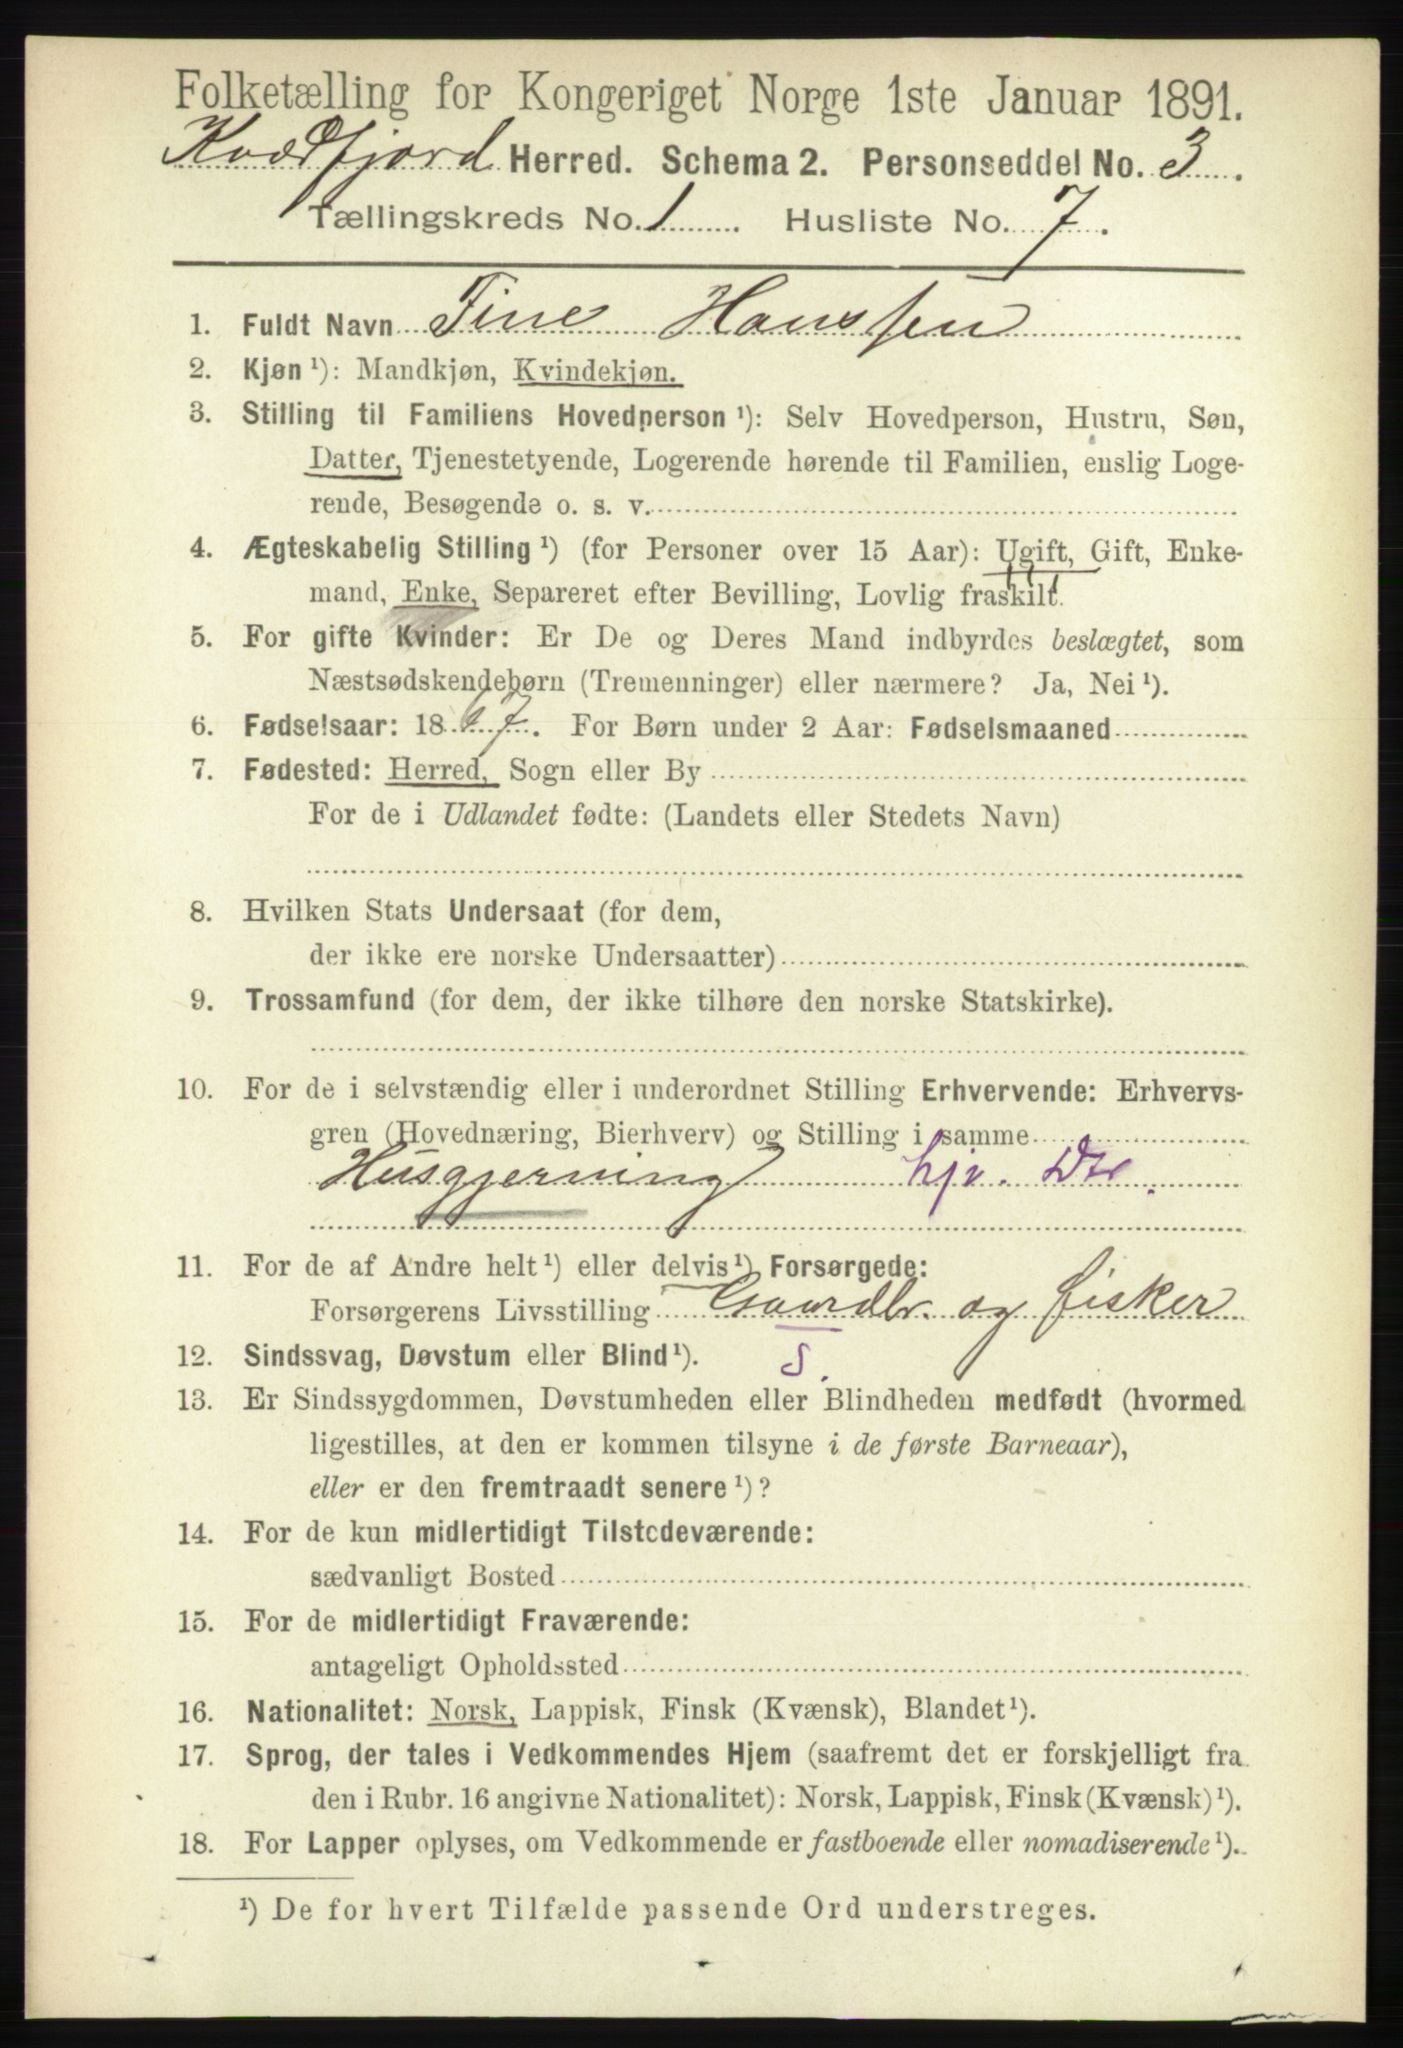 Folketælling for Kongeriget Norge 1ste Januar 1891.
Kvædfjord Herred. Schema 2. Personseddel No. 3.
Tællingskreds No. 1. Husliste No. 7.
1. Fuldt Navn Tine Hanssen
2. Kjøn ¹): Mandkjøn, Kvindekjøn.
3. Stilling til Familiens Hovedperson ¹): Selv Hovedperson, Hustru, Søn,
Datter, Tjenestetyende, Logerende hørende til Familien, enslig Loge-
rende, Besøgende o. s. v.
4. Ægteskabelig Stilling ¹) (for Personer over 15 Aar): Ugift, Gift, Enke-
mand, Enke, Separeret efter Bevilling, Lovlig fraskilt.
5. For gifte Kvinder: Er De og Deres Mand indbyrdes beslægtet, som
Næstsødskendebørn (Tremenninger) eller nærmere? Ja, Nei ¹).
6. Fødselsaar: 1867. For Børn under 2 Aar: Fødselsmaaned
7. Fødested: Herred, Sogn eller By
For de i Udlandet fødte: (Landets eller Stedets Navn)
8. Hvilken Stats Undersaat (for dem,
der ikke ere norske Undersaatter)
9. Trossamfund (for dem, der ikke tilhøre den norske Statskirke).
10. For de i selvstændig eller i underordnet Stilling Erhvervende: Erhvervs-
gren (Hovednæring, Bierhverv) og Stilling i samme
Husgjerning hjv. Dtr.
11. For de af Andre helt ¹) eller delvis ¹) Forsørgede:
Forsørgerens Livsstilling Gaardbr. og fisker
12. Sindssvag, Døvstum eller Blind ¹). S.
13. Er Sindssygdommen, Døvstumheden eller Blindheden medfødt (hvormed
ligestilles, at den er kommen tilsyne i de første Barneaar),
eller er den fremtraadt senere ¹)?
14. For de kun midlertidigt Tilstedeværende:
sædvanligt Bosted
15. For de midlertidigt Fraværende:
antageligt Opholdssted
16. Nationalitet: Norsk, Lappisk, Finsk (Kvænsk), Blandet ¹).
17. Sprog, der tales i Vedkommendes Hjem (saafremt det er forskjelligt fra
den i Rubr. 16 angivne Nationalitet): Norsk, Lappisk, Finsk (Kvænsk) ¹).
18. For Lapper oplyses, om Vedkommende er fastboende eller nomadiserende ¹).
¹) De for hvert Tilfælde passende Ord understreges.